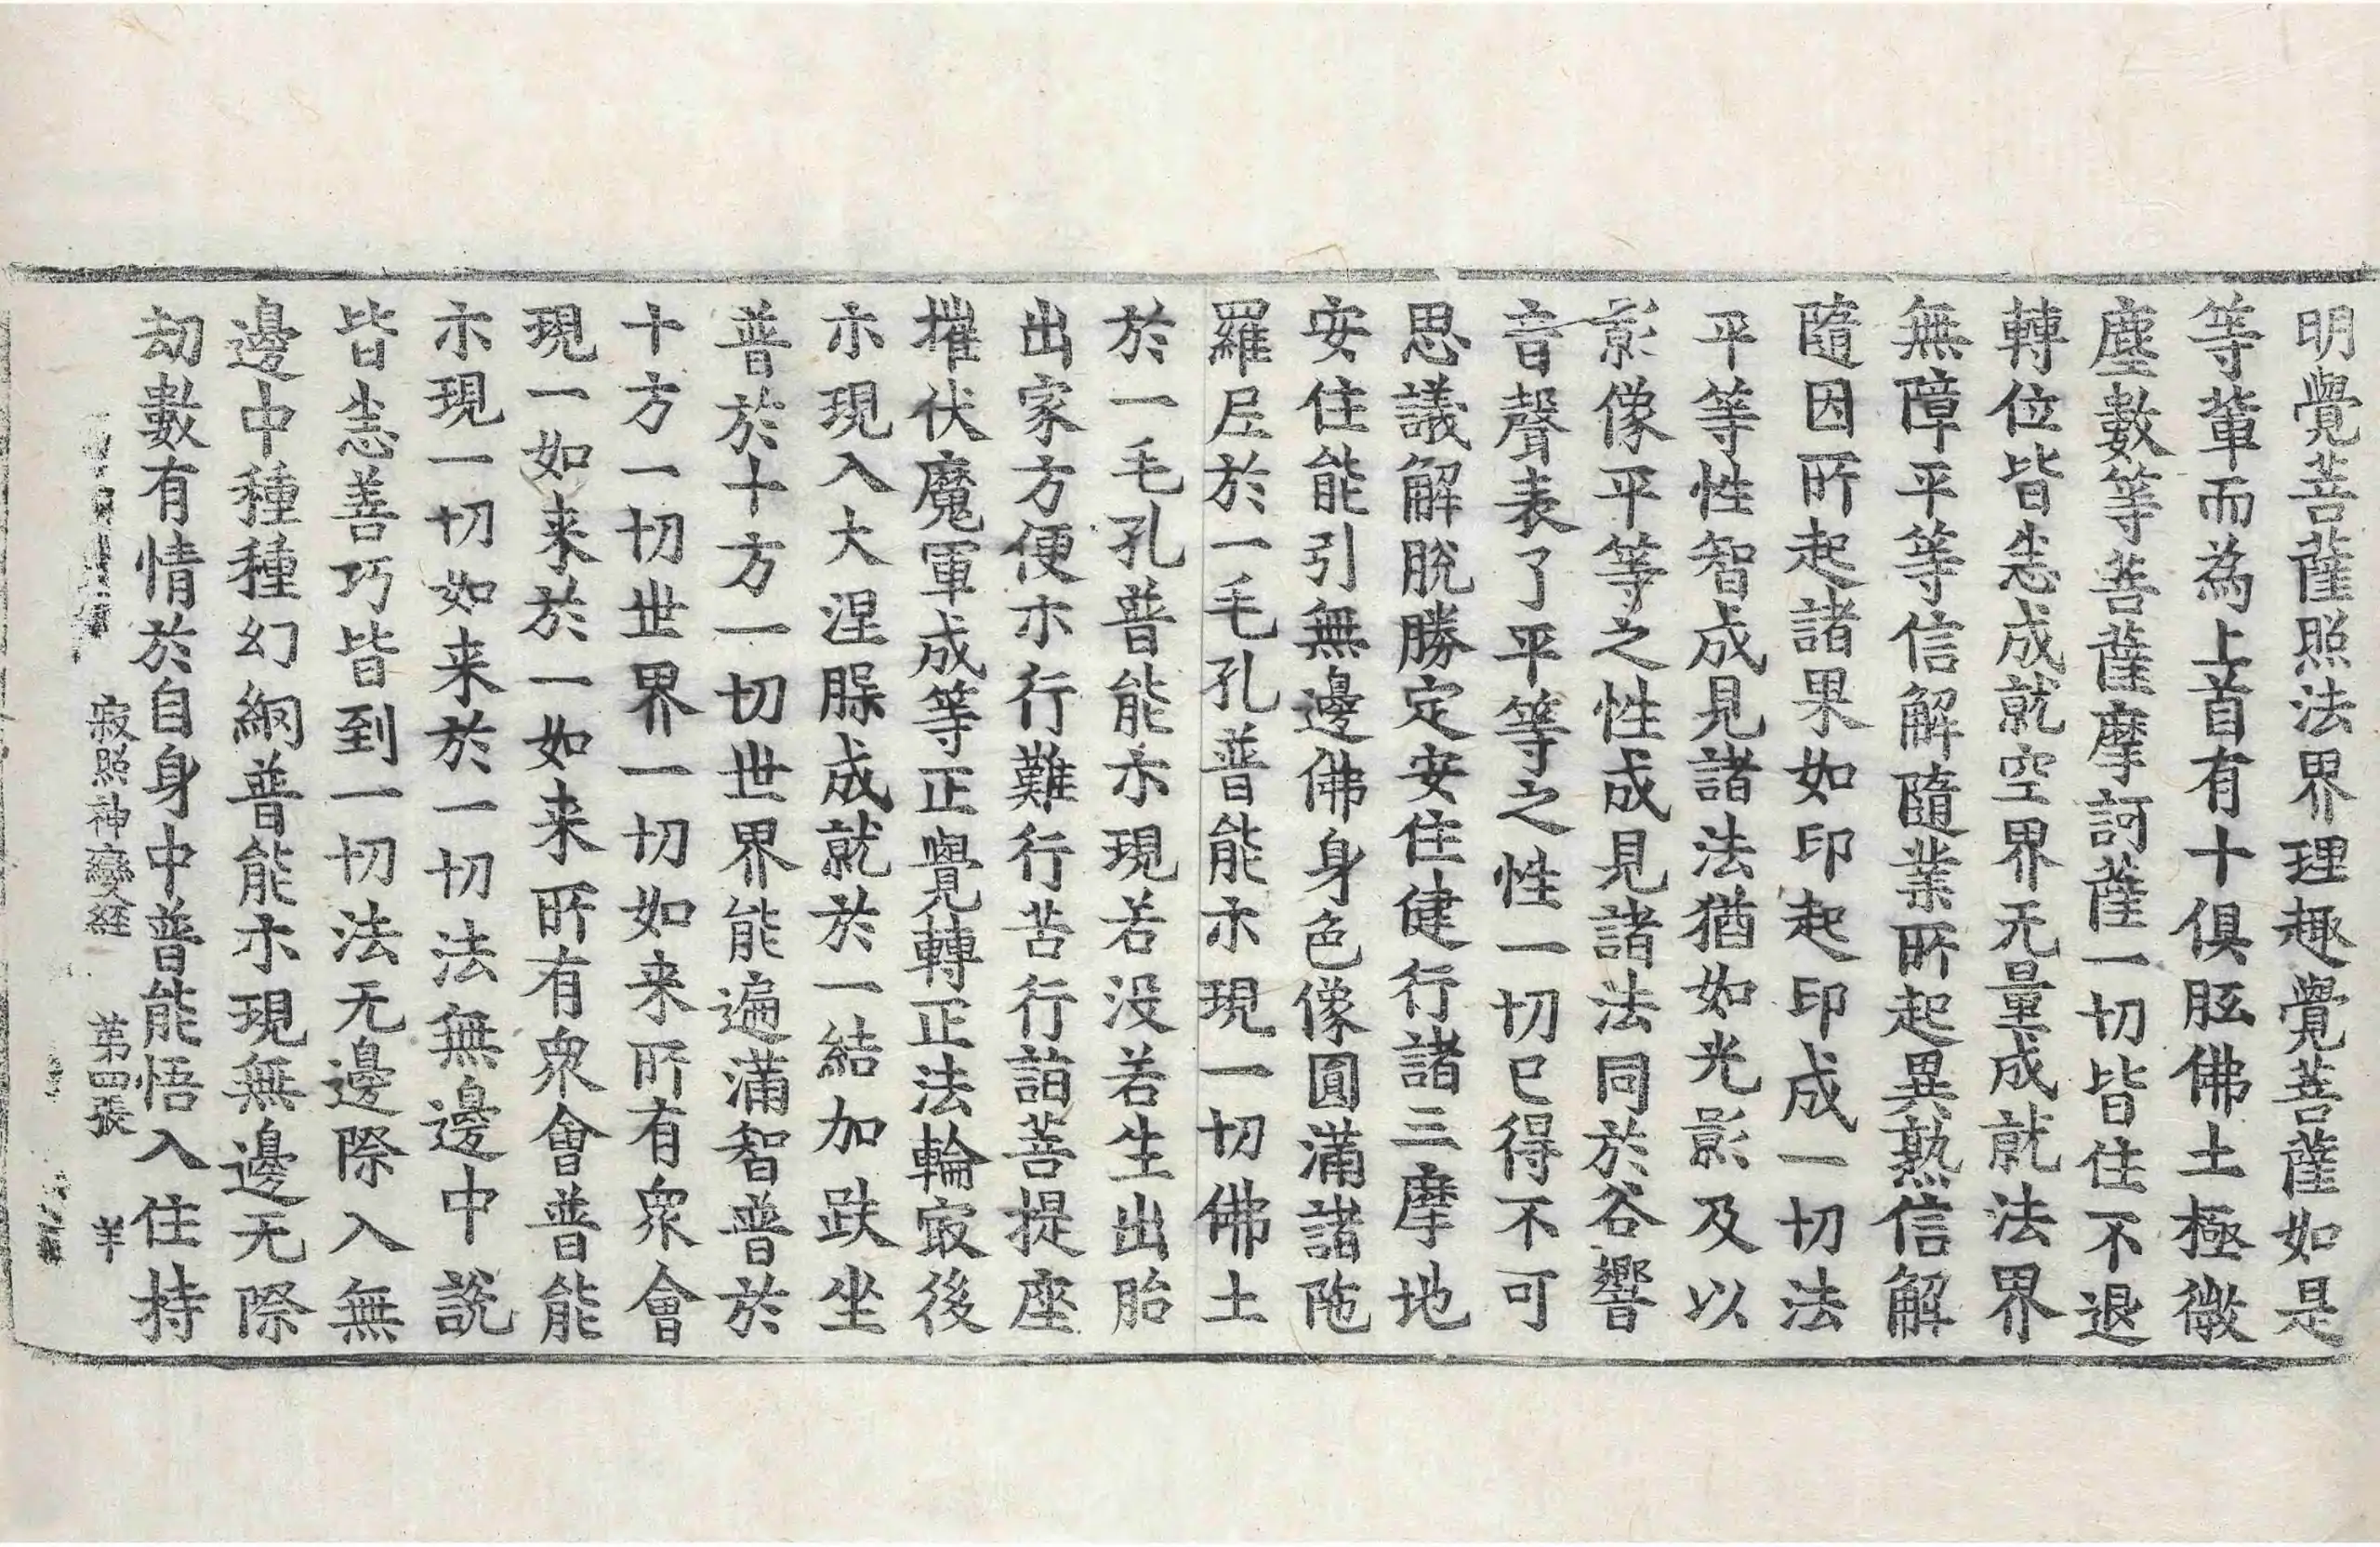 明覺菩薩照法界理趣覺菩薩如是
等輩而為上首有十俱胝佛土極微
塵數等菩薩摩訶薩一切皆住不退
轉位皆悉成就空界无量成就法界
無障平等信解隨業所起異熟信解
隨因所起諸果如印起印成一切法
平等性智成見諸法猶如光影及以
影像平等之性成見諸法同於谷響
音聲表了平等之性一切已得不可
思議解脫勝定安住健行諸三摩地
安住能引無邊佛身色像圓滿諸陁
羅尼於一毛孔普能示現一切佛土
於一毛孔普能示現若没若生出胎
出家方便示行難行苦行詣菩提座
摧伏魔軍成等正覺轉正法輪㝡後
示現入大涅脲成就於一結加趺坐
普於十方一切世界能遍滿智普於
十方一切世界一切如来所有衆會
現一如来於一如来所有衆會普能
示現一切如来於一切法無邊中說
皆悉善巧皆到一切法无邊際入無
邊中種種幻網普能示現無邊无際
劫數有情於自身中普能悟入住持
寂照神變経 第四張 羊